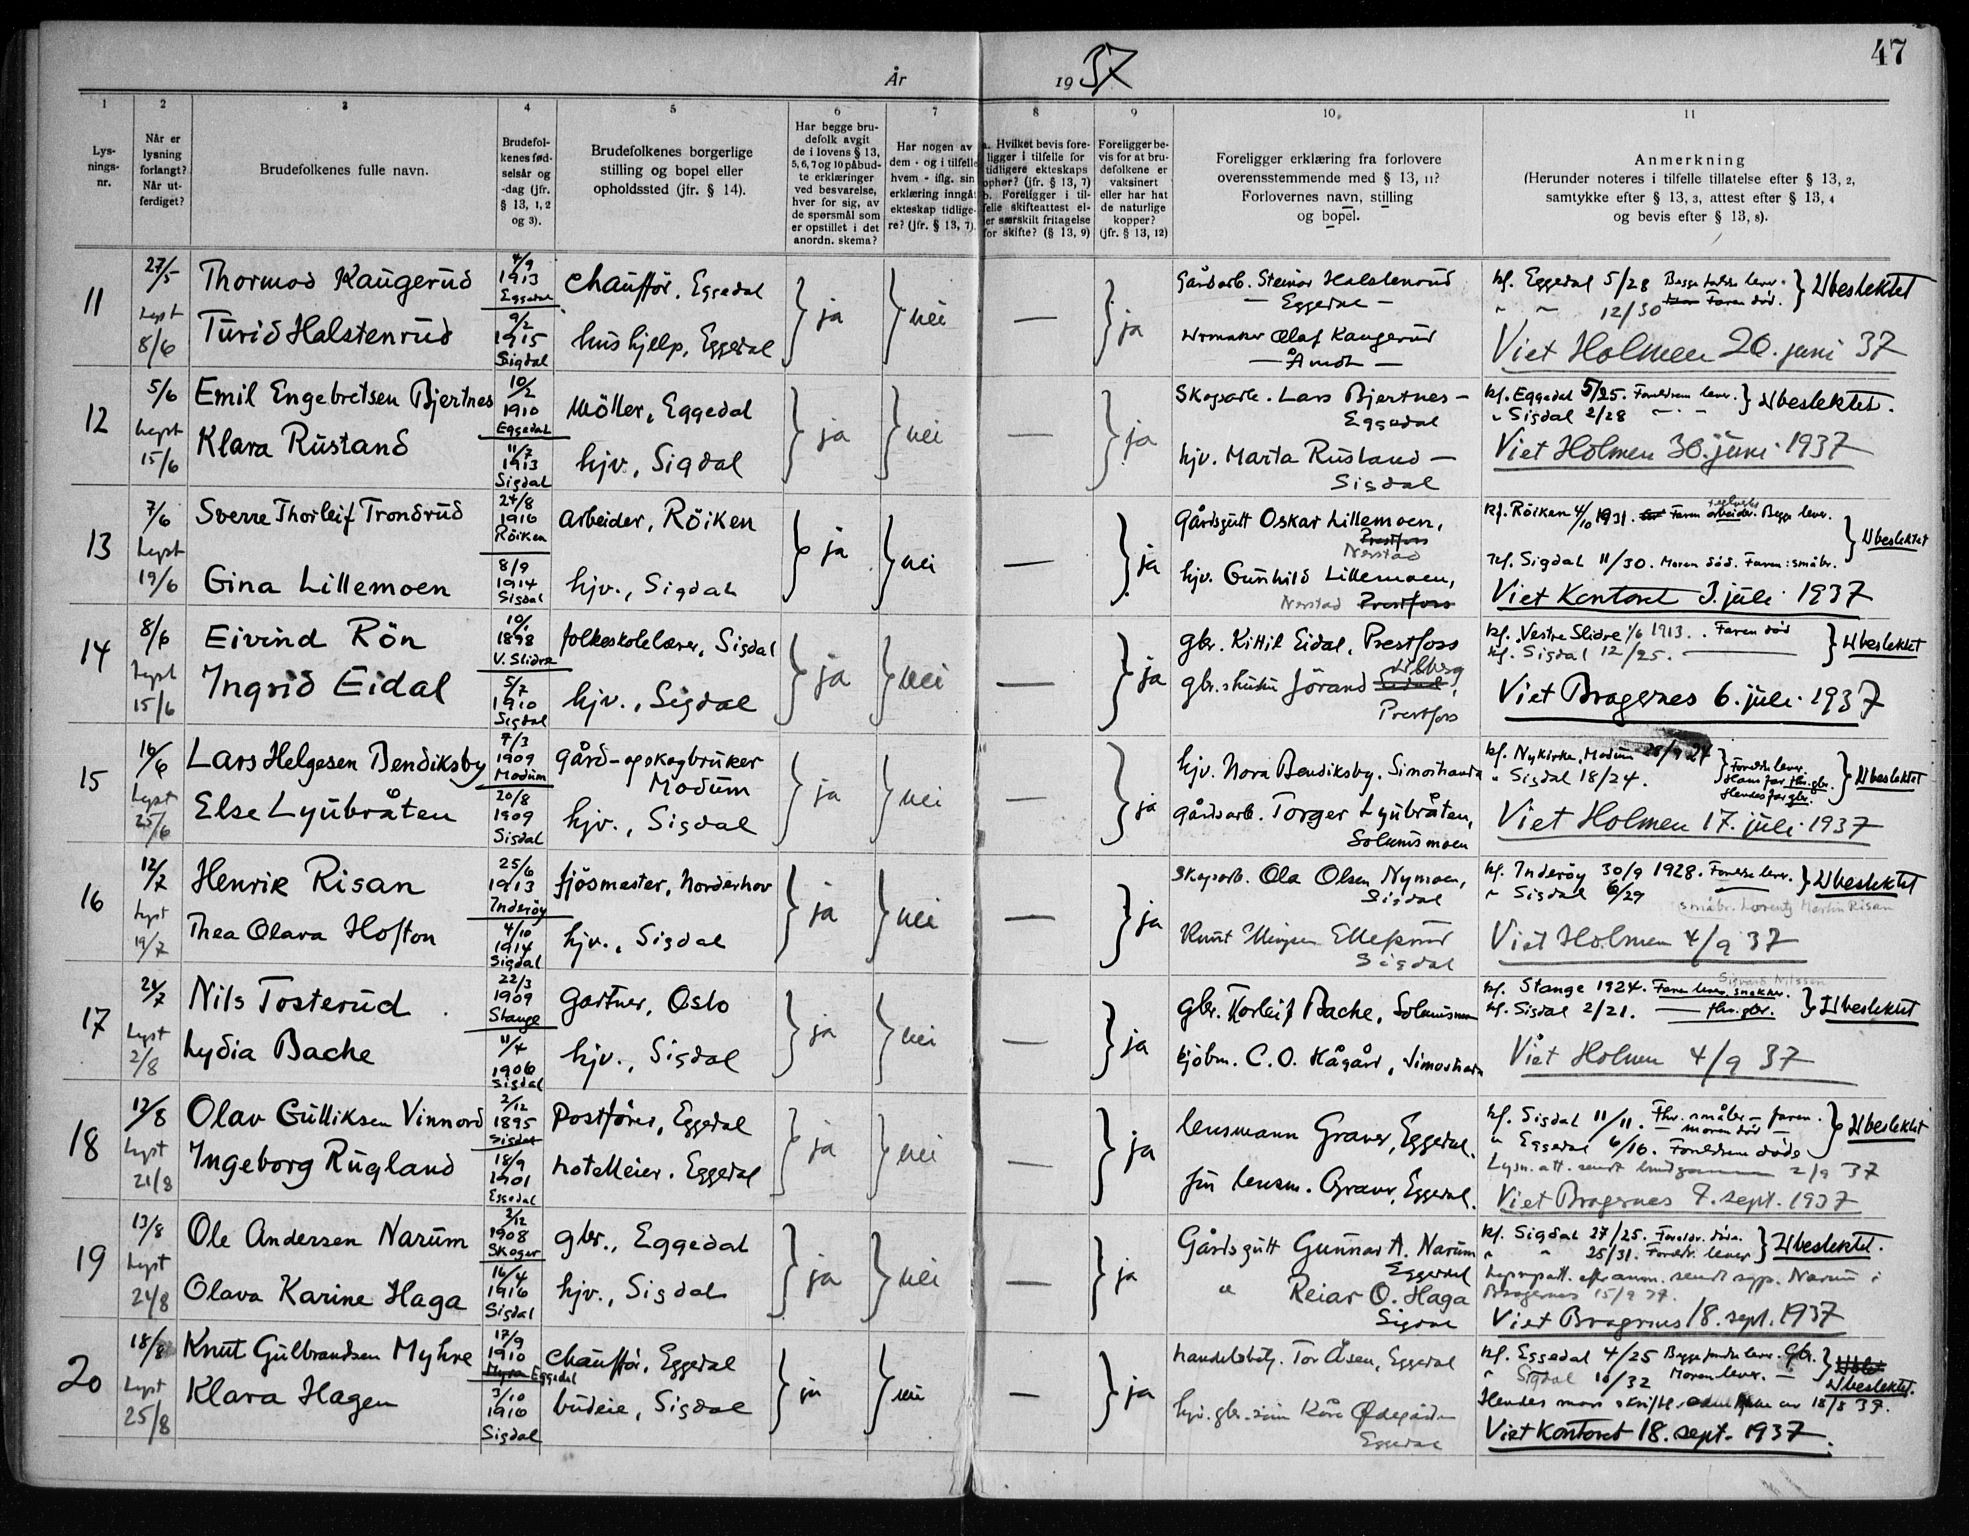 47
År 1937
1 2 3 4 5 6 7 8 9 10 11
Lysningsnr.
Når er lysning forlangt? Når utferdiget?
Brudefolkenes fulle navn.
Brudefolkenes fødselsår og -dag (jfr. § 13, 1, 2 og 3).
Brudefolkenes borgerlige stilling og bopel eller opholdssted (jfr. § 14).
Har begge brudefolk avgit de i lovens § 13, 5, 6, 7 og 10 påbudte erklæringer ved besvarelse, hver for sig, av de spørsmål som er opstillet i det anordn. skema?
Har nogen av dem - og i tilfelle hvem - iflg. sin erklæring inngåt ekteskap tidligere? (jfr. § 13, 7)
a. Hvilket bevis foreligger i tilfelle for tidligere ekteskaps ophør? (jfr. § 13, 7) b. Foreligger i tilfelle skifteattest eller særskilt fritagelse for skifte? (§ 13, 9)
Foreligger bevis for at brudefolkene er vaksinert eller har hat de naturlige kopper? (jfr. § 13, 12)
Foreligger erklæring fra forlovere overensstemmende med § 13, 11? Forlovernes navn, stilling og bopel.
Anmerkning
(Herunder noteres i tilfelle tillatelse efter § 13, 2, samtykke efter § 13, 3, attest efter § 13, 4 og bevis efter § 13, 8).
11
27/5
Lyst
8/6
Thormod Kaugerud
Turid Halstenrud
4/9 1913 Eggedal
9/2 1915 Sigdal
chauffør, Eggedal
hushjelp, Eggedal
ja
nei
—
ja
Gårdarb. Steinar Halstenrud
— Eggedal —
Urmaker Olaf Kaugerud
— Åmot —
kf. Eggedal 5/28 Begge foreldre lever.
" " 12/30 Faren död.
Ubeslektet
Viet Holmen 20. juni 37
12
5/6
Lyst
15/6
Emil Engebretsen Bjertnes
Klara Rustand
10/2 1910 Eggedal
11/7 1913 Sigdal
Möller, Eggedal
hjv., Sigdal
ja
nei
—
ja
Skogsarb. Lars Bjertnes —
Eggedal
hjv. Marta Rustand —
Sigdal
kf. Eggedal 5/25. Foreldrene lever.
" Sigdal 2/28 " "
Ubeslektet.
Viet Holmen 30. juni 1937
13
7/6
Lyst
19/6
Sverre Thorleif Trondrud
Gina Lillemoen
24/8 1916 Röiken
8/9 1914 Sigdal
arbeider, Röiken
hjv., Sigdal
ja
nei
—
ja
Gårdsgutt Oskar Lillemoen,
Prestfoss
Nerstad
hjv. Gunhild Lillemoen,
Nerstad Prestfoss
kf. Röiken 4/10 1931. Faren arbeider. Begge lever.
kf. Sigdal 11/30. Moren död. Faren: småbr.
Ubeslektet
Viet Kontoret 3. juli 1937
14
8/6
Lyst
15/6
Eivind Rön
Ingrid Eidal
1898 V. Slidre
5/7 1910 Sigdal
folkeskolelærer, Sigdal
hjv., Sigdal
ja
nei
—
ja
gbr. Kittil Eidal, Prestfoss
gbr. hustru Jörand
Prestfoss
kf. Vestre Slidre 1/6 1913. Faren död
kf. Sigdal 12/25. —
Ubeslektet
Viet Bragernes 6. juli 1937
15
16/6
Lyst
25/6
Lars Helgesen Bendiksby
Else Lyubråten
7/3 1909 Modum
20/8 1909 Sigdal
gård- og skogbruker
Modum
hjv., Sigdal
ja
nei
—
ja
hjv. Nora Bendiksby. Simostranda
gårdsarb. Torger Lyubråten,
Solumsmoen
kf. Nykirke, Modum 28/9 24
" Sigdal 18/24.
Foreldre lever.
Hans far fhv. gbr.
Hendes far gbr.
Ubeslektet
Viet Holmen 17. juli 1937
16
12/7
Lyst
19/7
Henrik Risan
Thea Olava Hofton
25/6 1913 Inderøy
4/10 1914 Sigdal
fjösmester, Norderhov
hjv., Sigdal
ja
nei
—
ja
Skogsarb. Ola Olsen Nymoen,
Sigdal
Knut
Sigdal
kf. Inderöy 30/9 1928. Foreldre lever.
" Sigdal 6/29
Ubeslektet
småbr. Lorentz Martin Risan
Viet Holmen 4/9 37
17
24/7
Lyst
2/8
Nils Tosterud
Lydia Bache
22/3 1909 Stange
11/4 1906 Sigdal
gartner, Oslo
hjv., Sigdal
ja
nei
—
ja
gbr. Torleif Bache, Solumsmoen
kjöbm. C. O. Hågård, Simostranda
Sigvard Nilssen
kf. Stange 1924. Faren lever, snekker.
kf. Sigdal 2/21. — fhv. gbr.
Ubeslektet
Viet Holmen 4/9 37
18
12/8
Lyst
21/8
Olav Gulliksen Vinnord
Ingeborg Rugland
2/12 1895 Sigdal
18/9 1901 Eggedal
Postförer, Eggedal
hotelleier. Eggedal
ja
nei
—
ja
lensmann Graver, Eggedal.
fru lensm. Graver, Eggedal.
kf. Sigdal 11/11. Fhv. småbr. — faren.
— moren död —
" Eggedal 6/16. Foreldrene döde
Ubeslektet
Lysn. att. sendt brudgommen 2/9 37
Viet Bragernes 7. sept. 1937
19
13/8
Lyst
24/8
Ole Andersen Narum
Olava Karine Haga
2/12 1908 Skoger
16/4 1916 Sigdal
gbr., Eggedal
hjv., Sigdal
ja
nei
—
ja
Gårdsgutt Gunnar A. Narum
Eggedal
" Reiar O. Haga
Sigdal
kf. Sigdal 27/25. Foreldr. döde
" " 25/31. Foreldr. lever
Ubeslektet.
Bragernes 15/9 37.
Viet Bragernes 18. sept. 1937
20
18/8
Lyst
25/8
Knut Gulbrandsen Myhre
Klara Hagen
17/9 1910 Eggedal
3/10 1916 Sigdal
chauffør, Eggedal
budeie, Sigdal
ja
nei
—
ja
handelsbetj. Tor Åsen, Eggedal
Eggedal
kf. Eggedal 4/25 Begge foreldre lever. Gbr.
" Sigdal 10/32 Moren lever. —
Ubeslektet.
Hendes mors skriftl. av 18/8 37.
Viet Kontoret 18. sept. 1937.